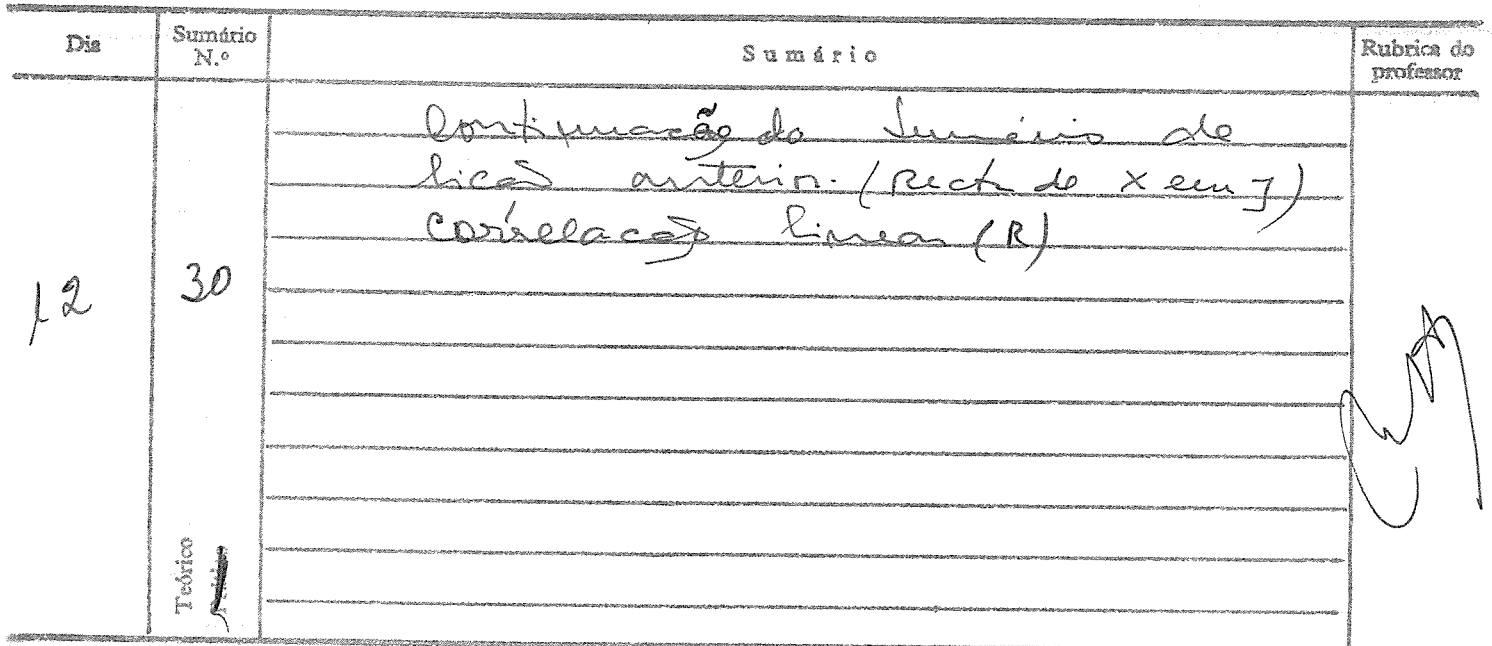 Dia
Sumário
N.º
Sumário
Rubrica do
professor
Continuação do Sumário de
lição anterior. (Recta de X em y)
Correlação linear (R)
12
30
Teórico